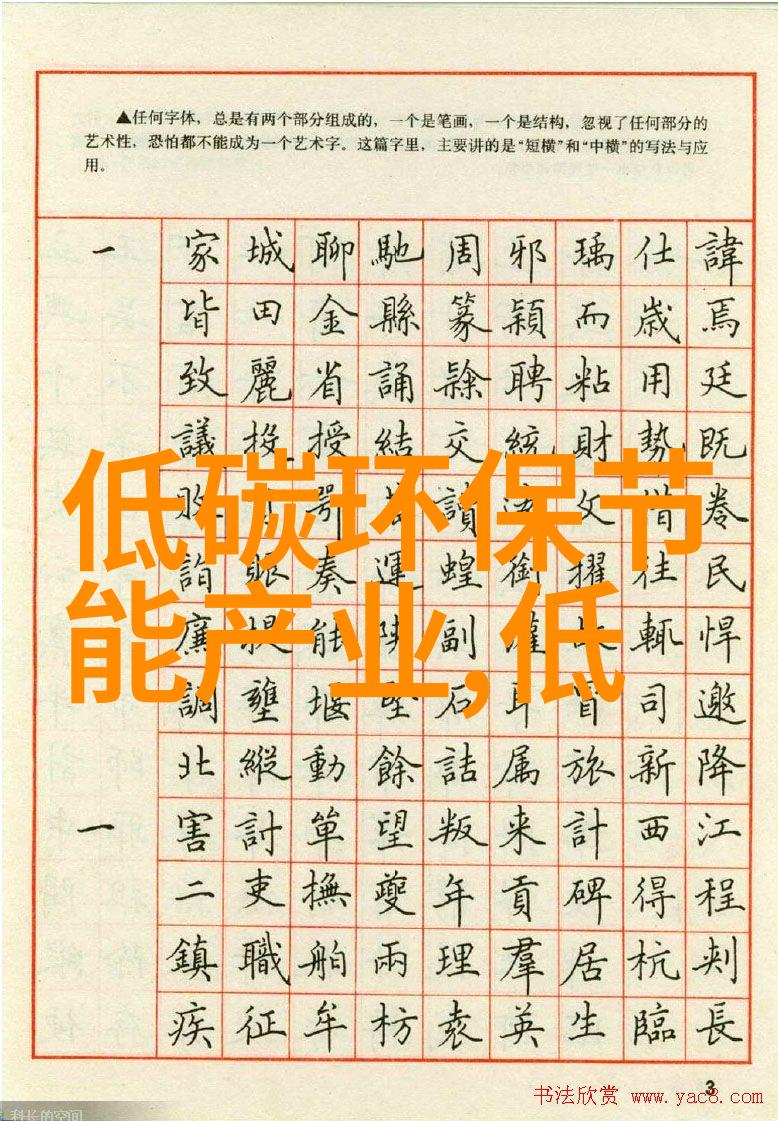 ▲任何字体，总是有两个部分组成的，一个是笔画，一个是结构，忽视了任何部分的
艺术性，恐怕都不能成为一个艺术字。这篇字里，主要讲的是“短横”和“中横”的写法与应
用。
一 家城聊馳周邪瑀仕諱
皆田金縣篆穎而歲焉
致麗省誦隸聘粘用廷
議投授結交統財勢既
低碳环保节
讀 文借卷
詣眼奏運蝗銜擢往民
能产业,低
廉提能陳副灌故輒悍
調壅堰堅石耳冒司邀
北縱動餘詰属旅新降
一 害討箄望叛来計西江
二吏撫夔年貢碑得程
鎮職舶兩理羣居杭刺
疾征牟枋袁英生臨長
3
书法欣赏 www.yac8.com
科长的空间